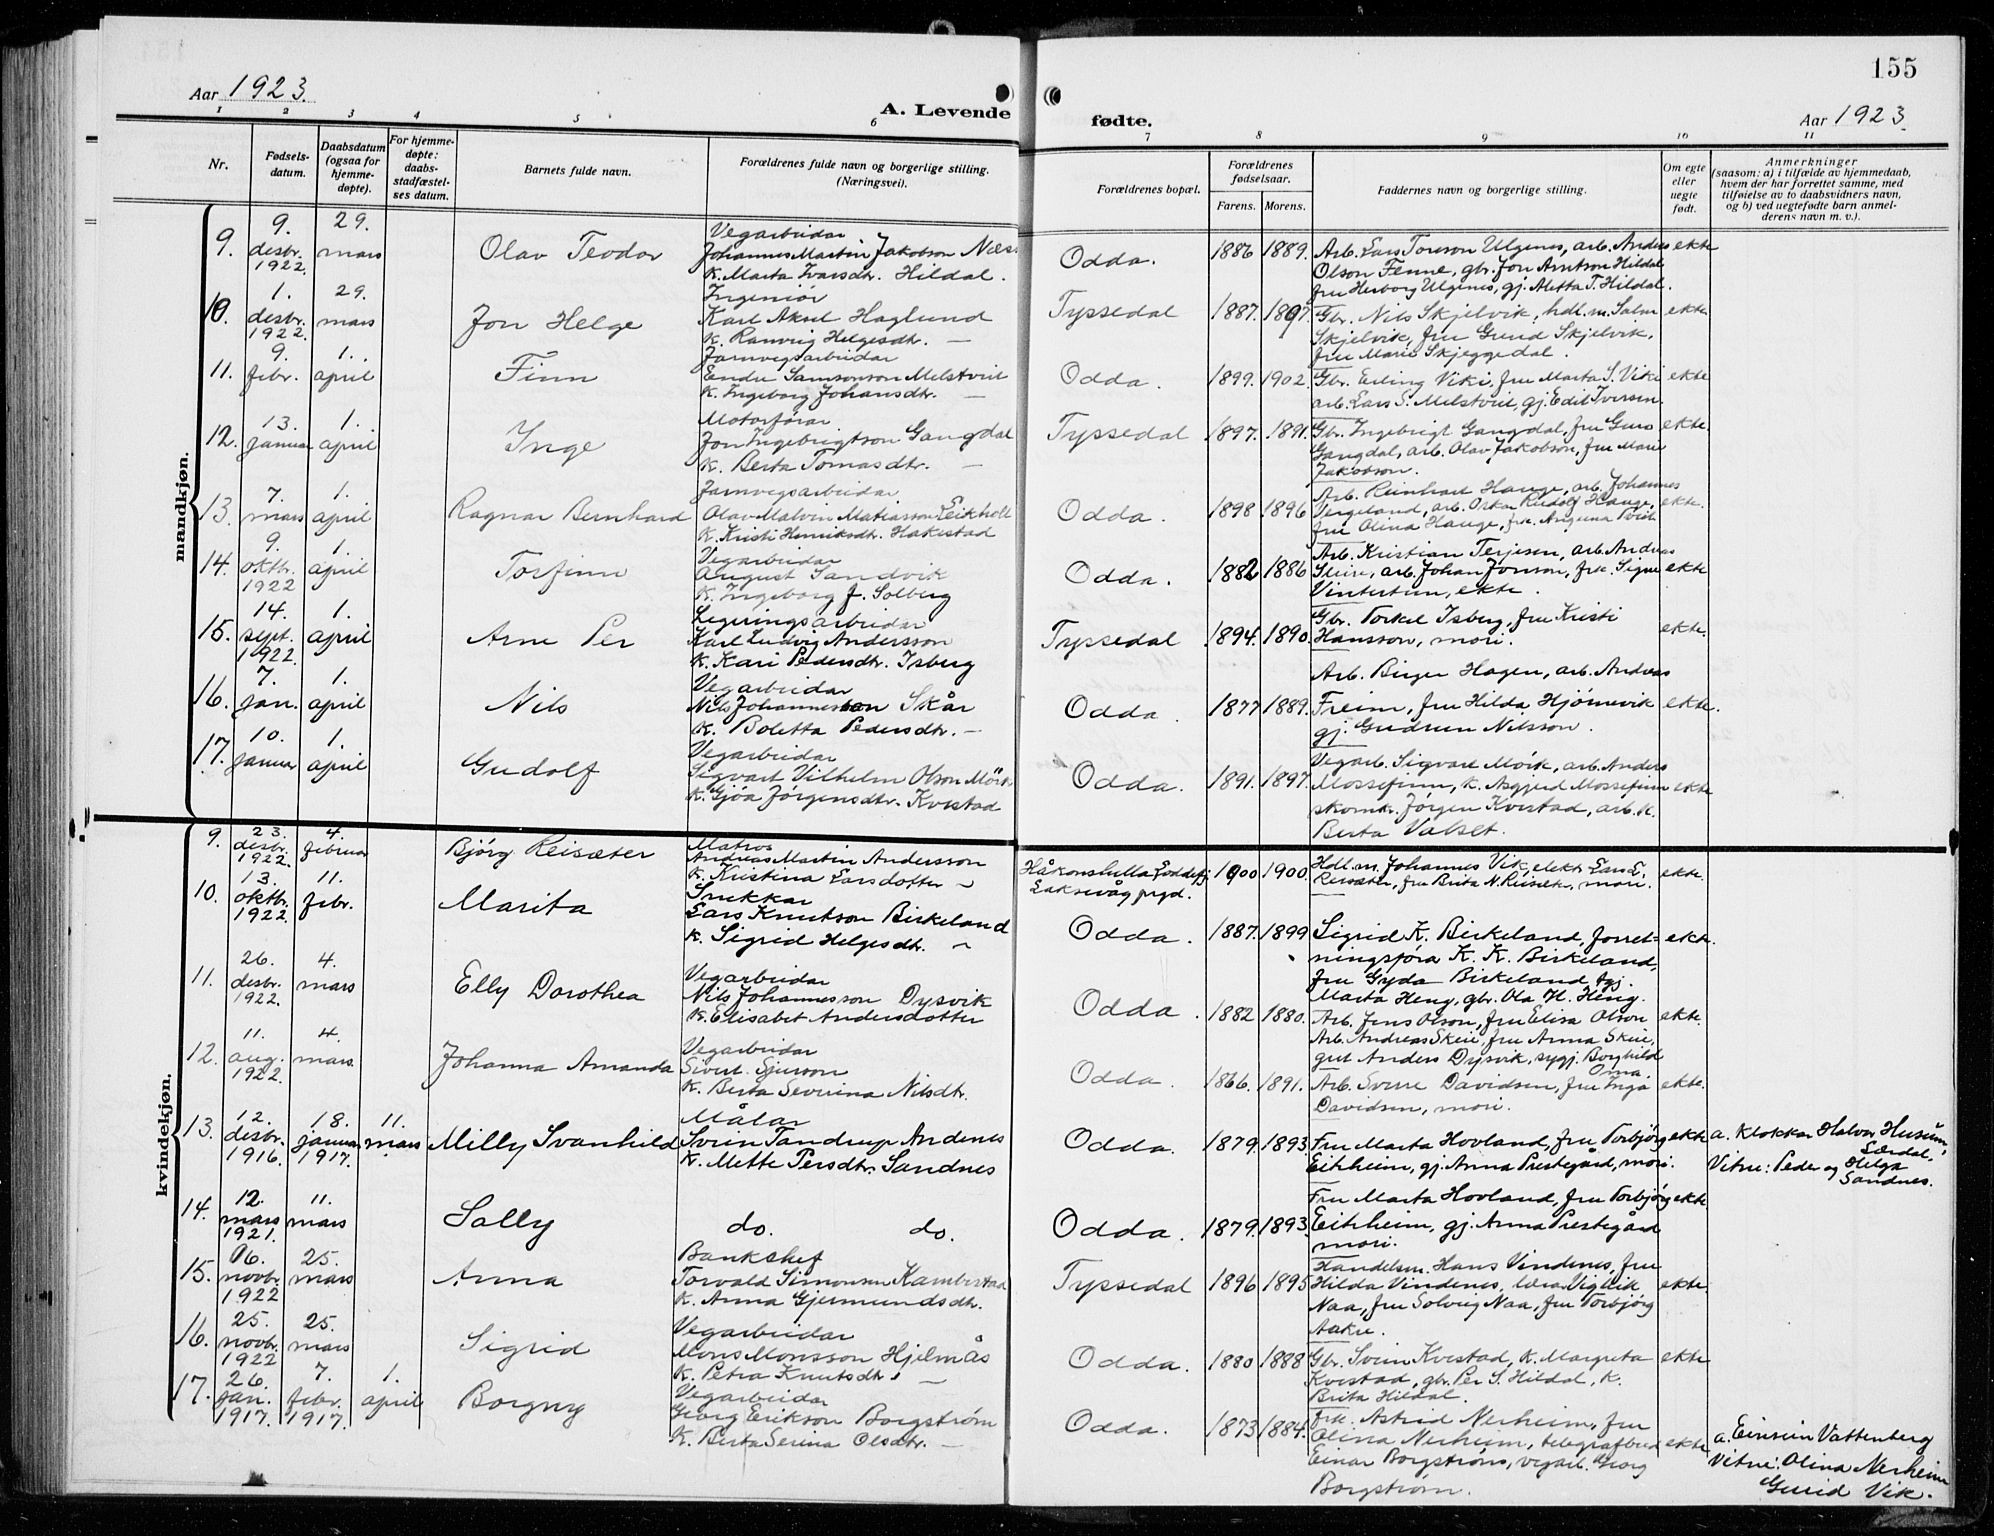 155
Aar 1923.
A. Levende
fødte.
Aar 1923.
1 2 3 4 5 6 7 8 9 10 11
Nr.
Fødsels-
datum.
Daabsdatum
(ogsaa for
hjemme-
døpte).
For hjemme-
døpte:
daabs-
stadfæstel-
ses datum.
Barnets fulde navn.
Forældrenes fulde navn og borgerlige stilling.
(Næringsvei).
Forældrenes bopæl.
Forældrenes
fødselsaar.
Farens. Morens.
Faddernes navn og borgerlige stilling.
Om egte
eller
uegte
født.
Anmerkninger
(saasom: a) i tilfælde av hjemmedaab,
hvem der har forrettet samme, med
tilføielse av to daabsvidners navn,
og b) ved uegtefødte barn anmel-
derens navn m. v.).
mandkjøn.
9. 9. desbr. 1922. 29. mars Olav Teodor
Vegarbeidar
Johannes Martin Jakobson Næss
k. Marta Ivarsdtr. Hildal.
Odda. 1886 1889.
Arb. Lars Toreson Ulgenes, arb. Anders ekte
Olson Fenne, gbr. Jon Arntson Hildal
fru Herborg Ulgenes, gj. Aletta T. Hildal.
10. 1. desbr. 1922. 29. mars Jon Helge
Ingeniør
Karl Aksel Haglund
k. Ranveig Helgesdtr. —
Tyssedal 1887. 1897.
Gbr. Nils Skjelvik, hdl.m. Salm ekte
Skjelvik, fru Gurid Skjelvik,
fru Marie Skjeggedal.
11. 9. febr. 1. april Finn
Jarnvegsarbeidar
Endre Samsonson Melstveit
k. Ingeborg Johansdtr. —
Odda. 1899. 1902.
Gbr. Erling Viki, fru Marta S. Viki ekte
arb. Lars S. Melstveit, gj. Edit Iversen.
12. 13. januar 1. april Inge
Motorførar
Jon Ingebrigtson Gangdal
k. Berta Tomasdtr. —
Tyssedal 1897. 1891.
Gbr. Ingebrigt Gangdal, fru Guro ekte.
Gangdal, arb. Olav Jakobson, fru Marie
Jakobson.
13. 7. mars 1. april Ragnar Bernhard
Jarnvegsarbeidar
Olav Malvin Matiasson Leikvoll
k. Kristi Henriksdtr. Hakestad
Odda. 1898 1896
Arb. Reinhart Hauge, arb. Johannes
Vergeland, arb. Oskar Rudolf Hauge, ekte.
fru Olina Hauge, frk.
14. 9. oktbr. 1922 1. april Torfinn
Vegarbeidar
August Sandvik
k. Ingeborg J. Solberg
Odda. 1882 1886
Arb. Kristian Terjesen, arb. Andreas
Skeie, arb. Johan Jonson, frk. Signe ekte
Vintertun, ekte.
15. 14. sept. 1922. 1. april Arne Per
Legeringsarbeidar
Karl Ludvig Andersson
k. Kari Pedersdtr. Isberg
Tyssedal 1894. 1890.
Gbr. Torkel Isberg, fru Kristi
Hansson, mori. ekte.
16. 7. jan. 1. april Nils
Vegarbeidar
Nils Johannesson Skår
k. Boletta Pedersdtr. —
Odda. 1877 1889.
Arb. Birger Hagen, arb. Andreas
Freim, fru Hilda Hjørnevik ekte.
gj. Gudrun Nilsson.
17. 10. januar 1. april Gudolf
Vegarbeidar
Sigvart Vilhelm Olson Mörk
k. Gjøa Jørgensdtr. Kvestad
Odda. 1891. 1897.
Vegarb. Sigvard Mörk, arb. Anders
Mossefinn, k. Asgjerd Mossefinn ekte
skomk. Jørgen Kvestad, arb. k.
Berta Valset.
kvindekjøn.
9. 23. desbr. 1922. 4. februar Bjørg Reisæter
Matros
Andreas Martin Andersson
k. Kristina Larsdotter —
Håkonshella Loddefj.
Laksevåg prgd.
1900 1900.
Hdl.m. Johannes Vik, elekt. Lars L. ekte.
Reisæter, fru Brita N. Reisæt., mori.
10. 13. oktbr. 1922. 11. febr. Marita
Snikkar
Lars Knutson Birkeland
k. Sigrid Helgesdtr. —
Odda. 1887. 1899
Sigrid K. Birkeland, forret- ekte.
ningsføra K. K. Birkeland,
fru Gyda Birkeland, gj.
Marta Heng, gbr. Ola H. Heng.
11. 26. desbr. 1922. 4. mars Elly Dorothea
Vegarbeidar
Nils Johannesson Dysvik
k. Elisabet Andersdotter
Odda. 1882 1880.
Arb. Jens Olson, fru Elisa Olson ekte.
Arb. Andreas Skeie, fru Anna Skeie,
gut Anders Dysvik, sygj. Borghild
Oma.
12. 11. aug. 1922. 4. mars. Johanna Amanda
Vegarbeidar
Sivert Sjurson
k. Berta Severina Nilsdtr.
Odda. 1866. 1891.
Arb. Sverre Davidsen, fru Inga ekte.
Davidsen, mori.
13. 12. desbr. 1916. 18. januar 1917. 11. mars Milly Svanhild
Målar
Svein Tandrup Andenes
k. Mette Persdtr. Sandnes
Odda. 1879. 1893.
Fru Marta Hovland, fru Torbjørg ekte
Eitrheim, gj. Anna Prestegård, mori.
a. Klokkar Halvar Husum,
Lærdal.
Vitne: Peder og Helga
Sandnes.
14. 12. mars 1921. 11. mars Solly
do. do.
Odda. 1879. 1893.
Fru Marta Hovland, fru Torbjørg ekte
Eitrheim, gj. Anna Prestegård
mori.
15. 16. novbr. 1922 25. mars Anna
Bankshef
Torvald Simonsen Kambestad
k. Anna Gjermundsdtr.
Tyssedal 1896 1895
Handelsm. Hans Vindenes, fru
Hilda Vindenes, lærar Vigleik ekte.
Naa, fru Solveig Naa, fru Torbjørg
Aakre.
16. 25. novbr. 1922 25. mars Sigrid
Vegarbeidar
Mons Monsson Hjelmås
k. Petra Knutsdtr. —
Odda. 1880 1888
Gbr. Svein Kvestad, k. Margreta ekte
Kvestad, gbr. Per S. Hildal, k.
Brita Hildal.
17. 26. jan. 1917. 7. febr. 1917. 1. april Borgny
Vegarbeidar
Georg Erikson Borgstrøm
k. Berta Serina Olsdtr. —
Odda. 1873 1884.
frk. Astrid Nerheim, fru
Olina Nerheim, telegrafbud ekte
Einar Borgstrøm, vegarb. Georg
Borgstrøm.
a. Vattenberg
Vitne: Olina Nerheim
Gurid Vik.